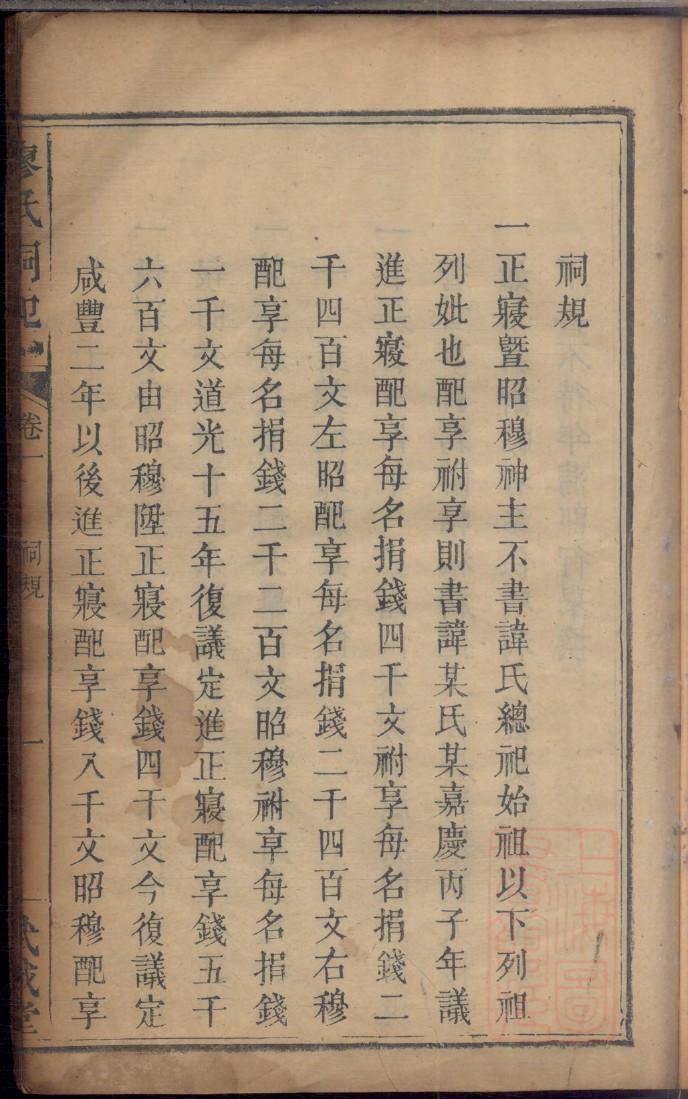 祠規
一正寢暨昭穆神主不書諱氏總祀始祖以下列祖
列妣也配享祔享則書諱某氏某嘉慶丙子年議
進正寢配享每名捐錢四千文祔享每名捐錢二
千四百文左昭配享每名捐錢二千四百文右穆
配享每名捐錢二千二百文昭穆祔享每名捐錢
一千文道光十五年復議定進正寢配享錢五千
六百文由昭穆陞正寢配享錢四千文今復議定
咸豐二年以後進正寢配享錢入千文昭穆配享
廖氏祠祀
卷一
祠規
一
武威堂